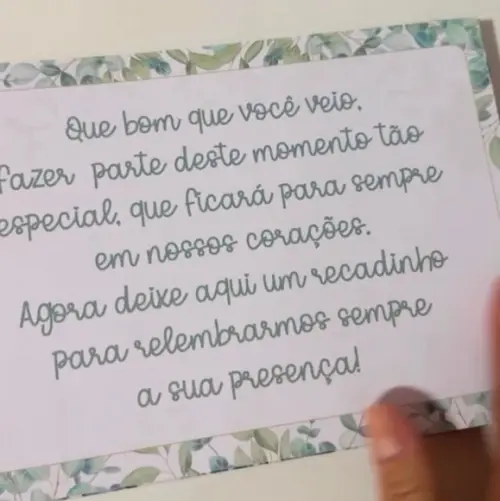 Que bom que você veio.
fazer parte deste momento tão
especial, que ficará para sempre
em nossos corações.
Agora deixe aqui um recadinho
para relembrarmos sempre
a sua presença!